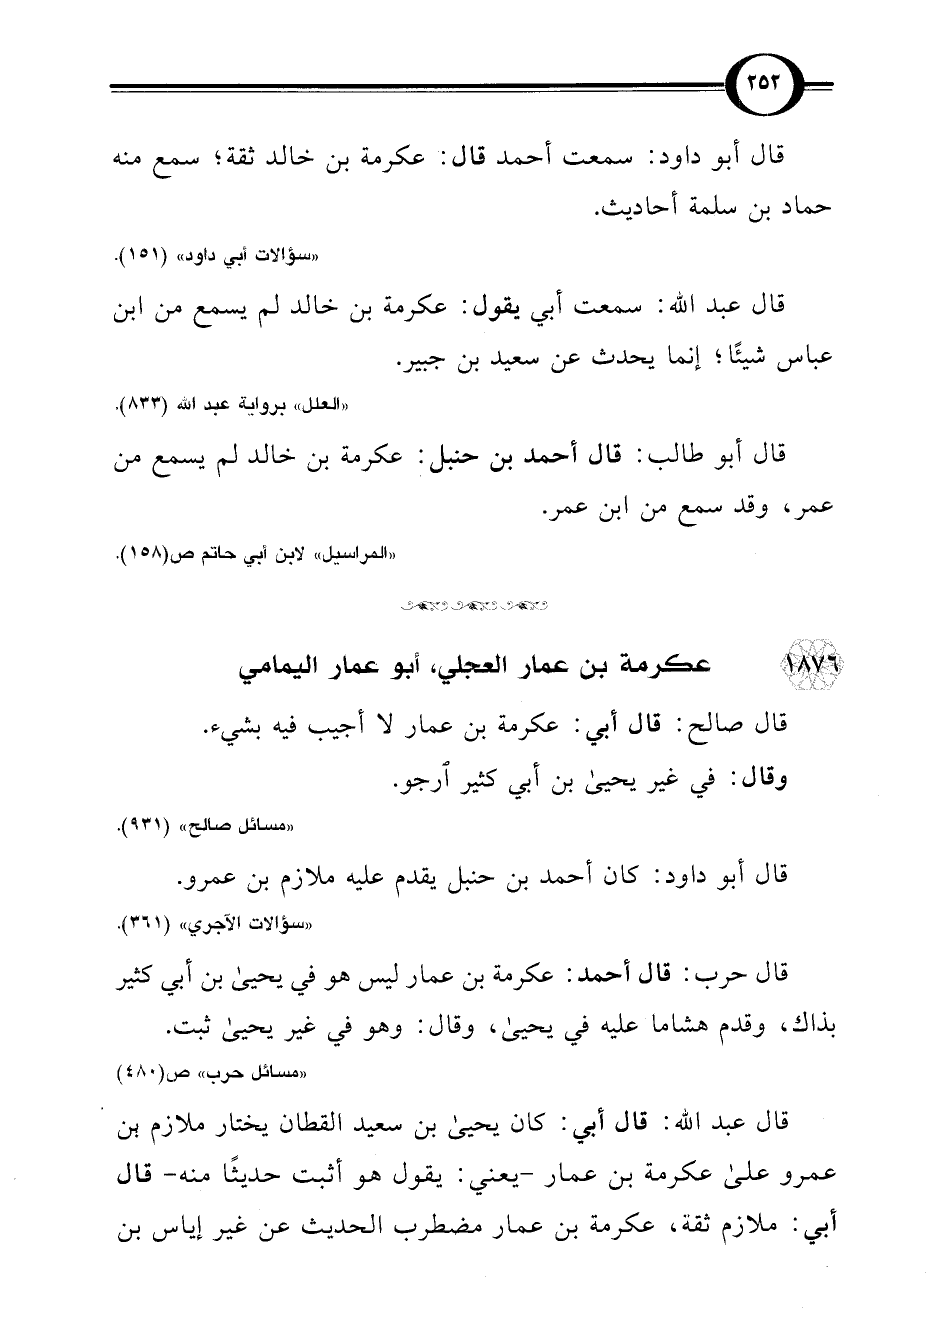 ٢٥٢
قال أبو داود: سمعت أحمد قال: عكرمة بن خالد ثقة؛ سمع منه
حماد بن سلمة أحاديث.
«سؤالات أبي داود» (١٥١).
قال عبد الله: سمعت أبي يقول: عكرمة بن خالد لم يسمع من ابن
عباس شيئًا؛ إنما يحدث عن سعيد بن جبير.
«العلل» برواية عبد الله (٨٣٣).
قال أبو طالب: قال أحمد بن حنبل: عكرمة بن خالد لم يسمع من
عمر، وقد سمع من ابن عمر.
«المراسيل» لابن أبي حاتم ص(١٥٨).
١٨٧٦ عكرمة بن عمار العجلي، أبو عمار اليمامي
قال صالح: قال أبي: عكرمة بن عمار لا أجيب فيه بشيء.
وقال: في غير يحيىٰ بن أبي كثير أرجو.
«مسائل صالح» (٩٣١).
قال أبو داود: كان أحمد بن حنبل يقدم عليه ملازم بن عمرو.
«سؤالات الآجري» (٣٦١).
قال حرب: قال أحمد: عكرمة بن عمار ليس هو في يحيىٰ بن أبي كثير
بذاك، وقدم هشاما عليه في يحيىٰ، وقال: وهو في غير يحيىٰ ثبت.
«مسائل حرب» ص(٤٨٠)
قال عبد الله: قال أبي: كان يحيىٰ بن سعيد القطان يختار ملازم بن
عمرو علىٰ عكرمة بن عمار -يعني: يقول هو أثبت حديثًا منه- قال
أبي: ملازم ثقة، عكرمة بن عمار مضطرب الحديث عن غير إياس بن